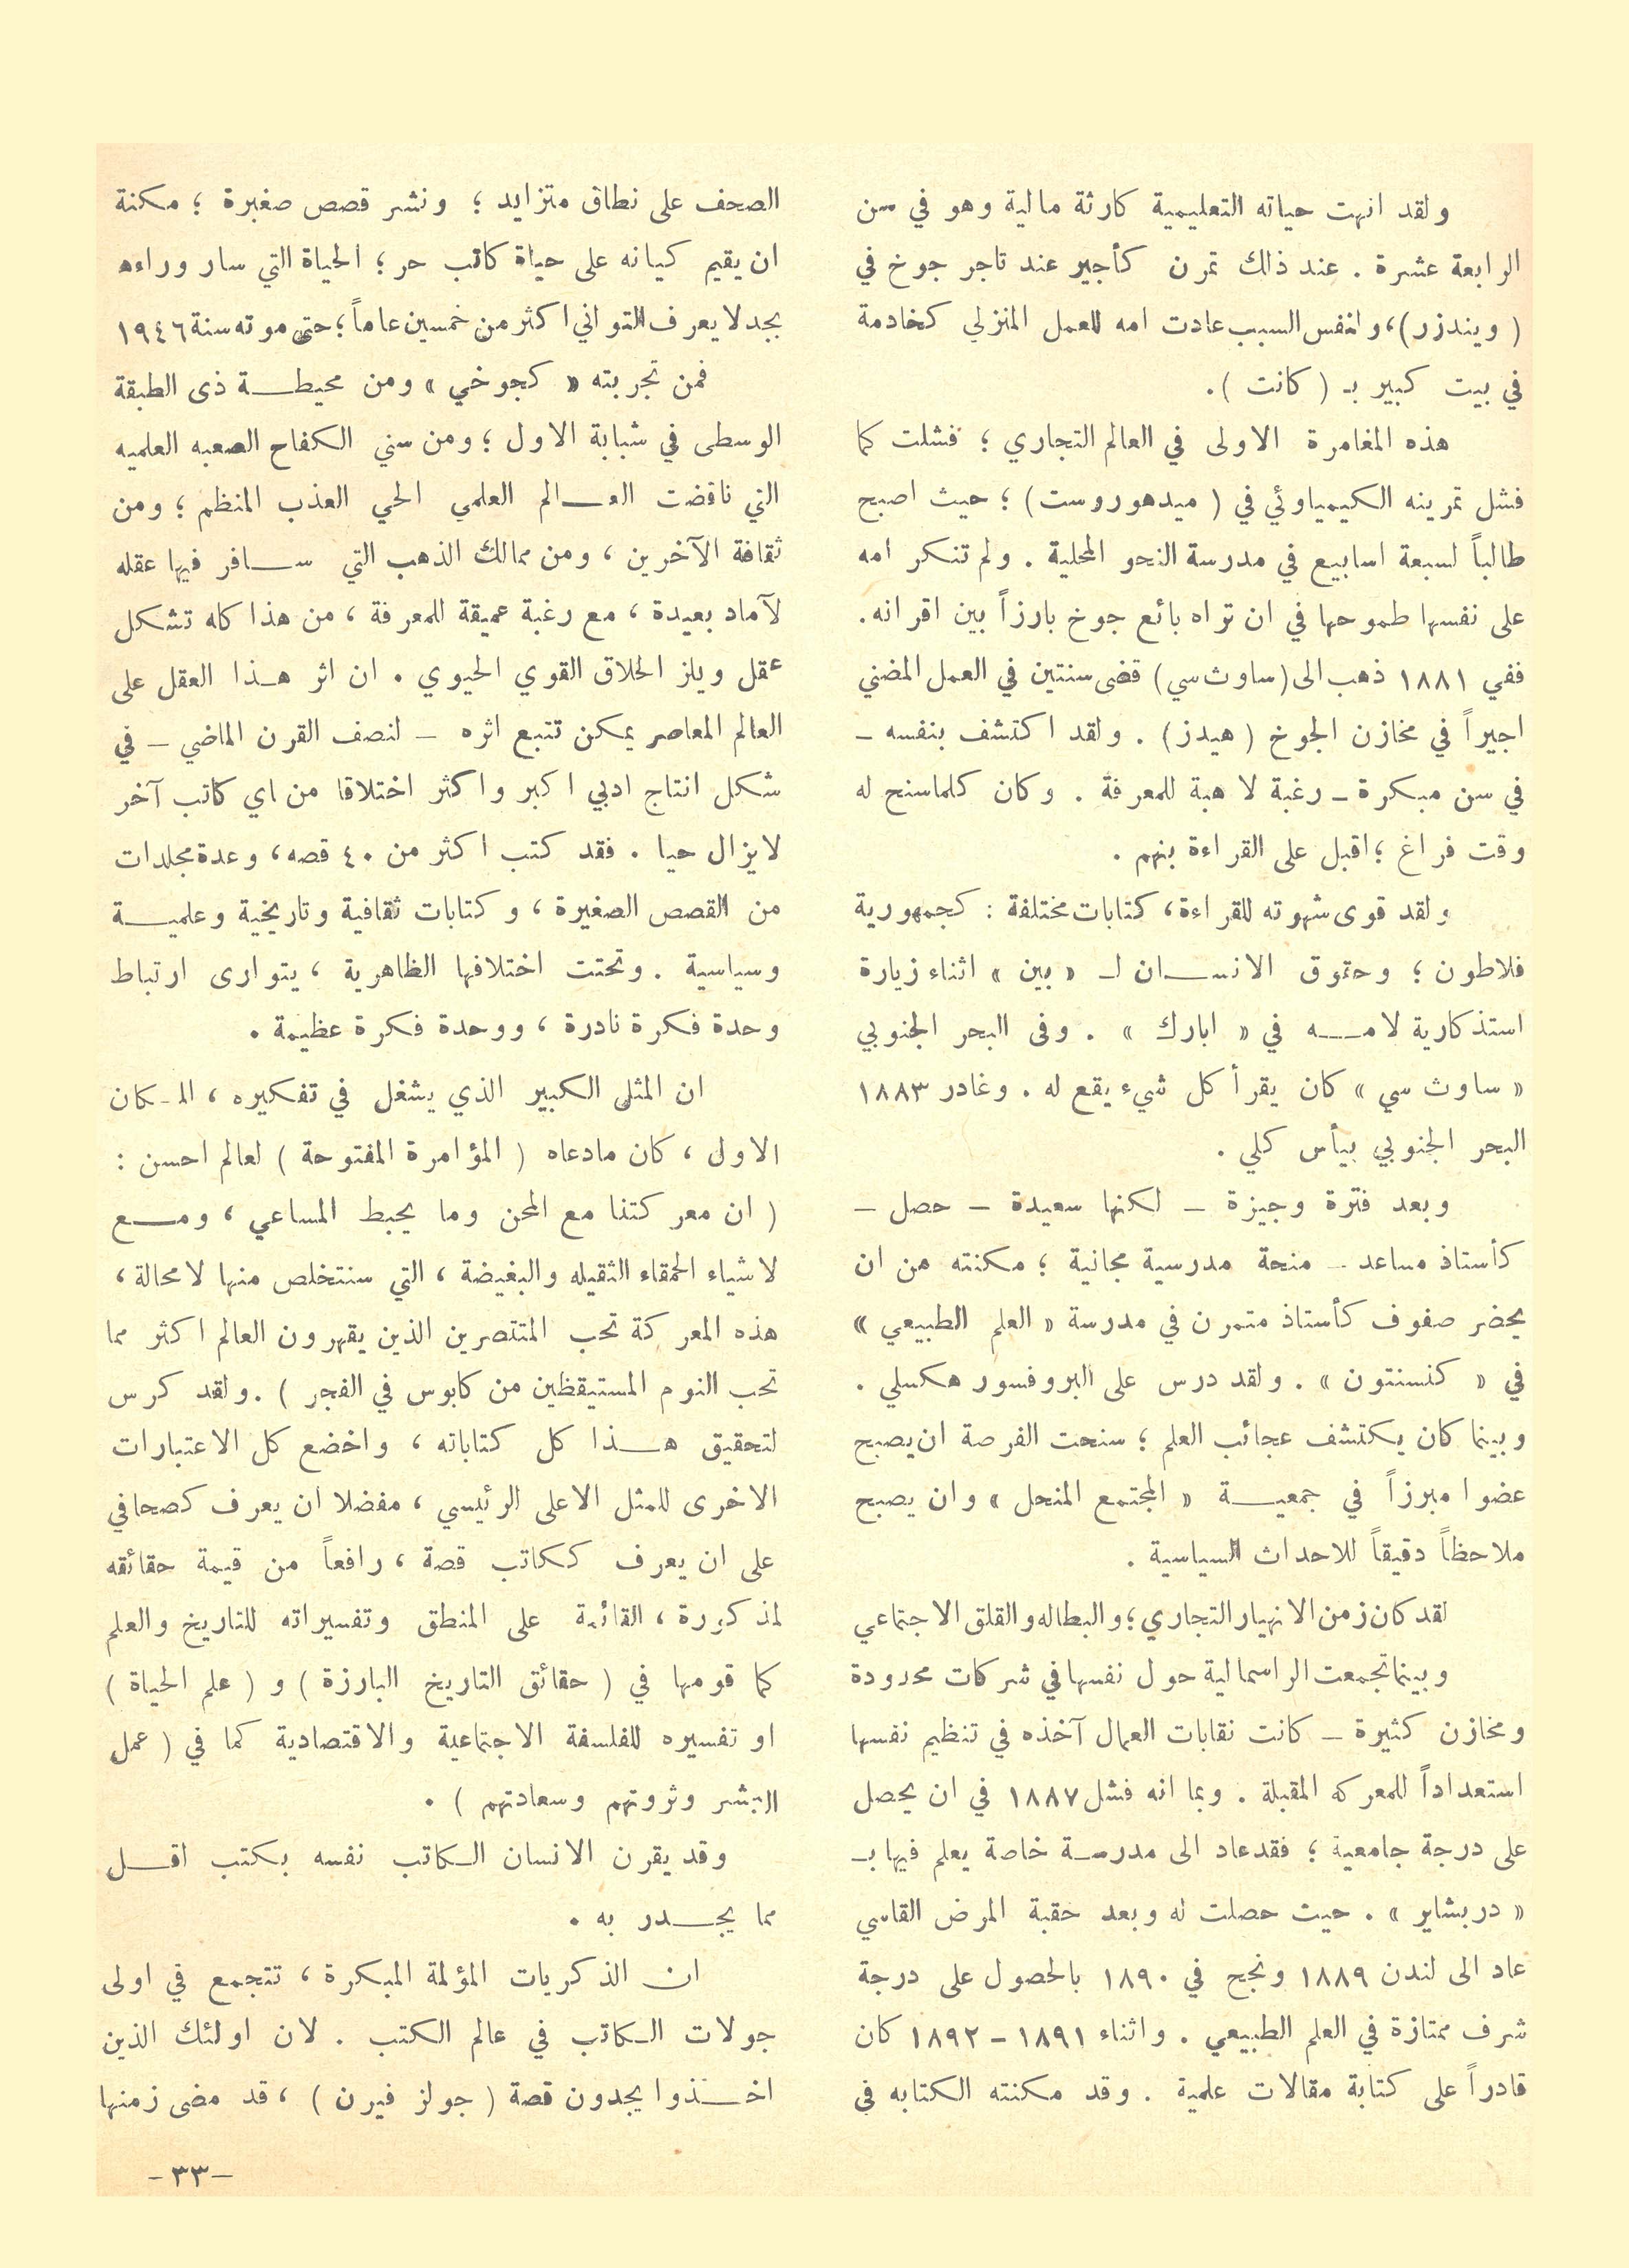 ولقد انهت حياته التعليمية كارثة مالية وهو في سن
الرابعة عشرة . عند ذلك تمرن كأجير عند تاجر جوخ في
( ويندزر)، ولنفس السبب عادت امه للعمل المنزلي كخادمة
في بيت كبير بـ ( كانت ) .
هذه المغامرة الاولى في العالم التجاري ؛ فشلت كما
فشل تمرينه الكيمياوئي في ( ميدهوروست ) ؛ حيث اصبح
طالباً لسبعة اسابيع في مدرسة النحو المحلية . ولم تنكر امه
على نفسها طموحها في ان تراه بائع جوخ بارزاً بين اقرانه .
ففي ١٨٨١ ذهب الى (ساوث سي) قضى سنتين في العمل المضني
اجيراً في مخازن الجوخ ( هيدز ) . ولقد اكتشف بنفسه –
في سن مبكرة – رغبة لاهبة للمعرفة . وكان كلما سنح له
وقت فراغ ؛ اقبل على القراءة بنهم .
ولقد قوى شهوته للقراءة، كتابات مختلفة : كجمهورية
فلاطون ؛ وحقوق الانسان لـ « بين » اثناء زيارة
استذكارية لامه في « ابارك » . وفى البحر الجنوبي
« ساوث سي » كان يقرأ كل شيء يقع له . وغادر ١٨٨٣
البحر الجنوبي بيأس كلي .
وبعد فترة وجيزة – لكنها سعيدة – حصل –
كأستاذ مساعد – منحة مدرسية مجانية ؛ مكنته من ان
يحضر صفوف كأستاذ متمرن في مدرسة « العلم الطبيعي »
في « كنسنتون » . ولقد درس على البروفسور هكسلي .
وبينما كان يكتشف عجائب العلم ؛ سنحت الفرصة ان يصبح
عضوا مبرزاً في جمعية « المجتمع المنحل » وان يصبح
ملاحظاً دقيقاً للاحداث السياسية .
لقد كان زمن الانهيار التجاري ؛ والبطاله والقلق الاجتماعي
وبينما تجمعت الراسمالية حول نفسها في شركات محدودة
ومخازن كثيرة – كانت نقابات العمال آخذه في تنظيم نفسها
استعداداً للمعركه المقبلة . وبما انه فشل ١٨٨٧ في ان يحصل
على درجة جامعية ؛ فقد عاد الى مدرسة خاصة يعلم فيها بـ
« دربشاير » . حيث حصلت له وبعد حقبة المرض القاسي
عاد الى لندن ١٨٨٩ ونجح في ١٨٩٠ بالحصول على درجة
شرف ممتازة في العلم الطبيعي . واثناء ١٨٩١ – ١٨٩٢ كان
قادراً على كتابة مقالات علمية . وقد مكنته الكتابه في
الصحف على نطاق متزايد ؛ ونشر قصص صغيرة ؛ مكنة
ان يقيم كيانه على حياة كاتب حر ؛ الحياة التي سار وراءه
بجد لا يعرف التواني اكثر من خمسين عاماً ؛ حتى موته سنة ١٩٤٦
فمن تجربته « كجوخي » ومن محيطة ذى الطبقة
الوسطى في شبابة الاول ؛ ومن سني الكفاح الصعبه العلميه
التي ناقضت العالم العلمي الحي العذب المنظم ؛ ومن
ثقافة الآخرين ، ومن ممالك الذهب التي سافر فيها عقله
لآماد بعيدة ، مع رغبة عميقة للمعرفة ، من هذا كله تشكل
عقل ويلز الخلاق القوي الحيوي . ان اثر هذا العقل على
العالم المعاصر يمكن تتبع اثره – لنصف القرن الماضي – في
شكل انتاج ادبي اكبر واكثر اختلاقا من اي كاتب آخر
لايزال حيا . فقد كتب اكثر من ٤٠ قصه، وعدة مجلدات
من القصص الصغيرة ، وكتابات ثقافية وتاريخية وعلمية
وسياسية . وتحتت اختلافها الظاهرية ، يتوارى ارتباط
وحدة فكرة نادرة ، ووحدة فكرة عظيمة .
ان المثلى الكبير الذي يشغل في تفكيره ، المكان
الاول ، كان مادعاه ( المؤامرة المفتوحة ) لعالم احسن :
( ان معركتنا مع المحن وما يحبط المساعي ، ومع
لاشياء الحمقاء الثقيله والبغيضة ، التي سنتخلص منها لا محالة ،
هذه المعركة تحب المنتصرين الذين يقهرون العالم اكثر مما
تحب النوم المستيقظين من كابوس في الفجر ) . ولقد كرس
لتحقيق هذا كل كتاباته ، واخضع كل الاعتبارات
الاخرى للمثل الاعلى الرئيسي ، مفضلا ان يعرف كصحافي
على ان يعرف ككاتب قصة ، رافعاً من قيمة حقائقه
لمذكورة ، القائمة على المنطق وتفسيراته للتاريخ والعلم
كما قومها في ( حقائق التاريخ البارزة ) و ( علم الحياة )
او تفسيره للفلسفة الاجتماعية والاقتصادية كما في ( عمل
البشر وثروتهم وسعادتهم ) .
وقد يقرن الانسان الكاتب نفسه بكتب اقل
مما يجدر به .
ان الذكريات المؤلمة المبكرة ، تتجمع في اولى
جولات الكاتب في عالم الكتب . لان اولئك الذين
اخذوا يجدون قصة ( جولز فيرن ) ، قد مضى زمنها
–٣٣–